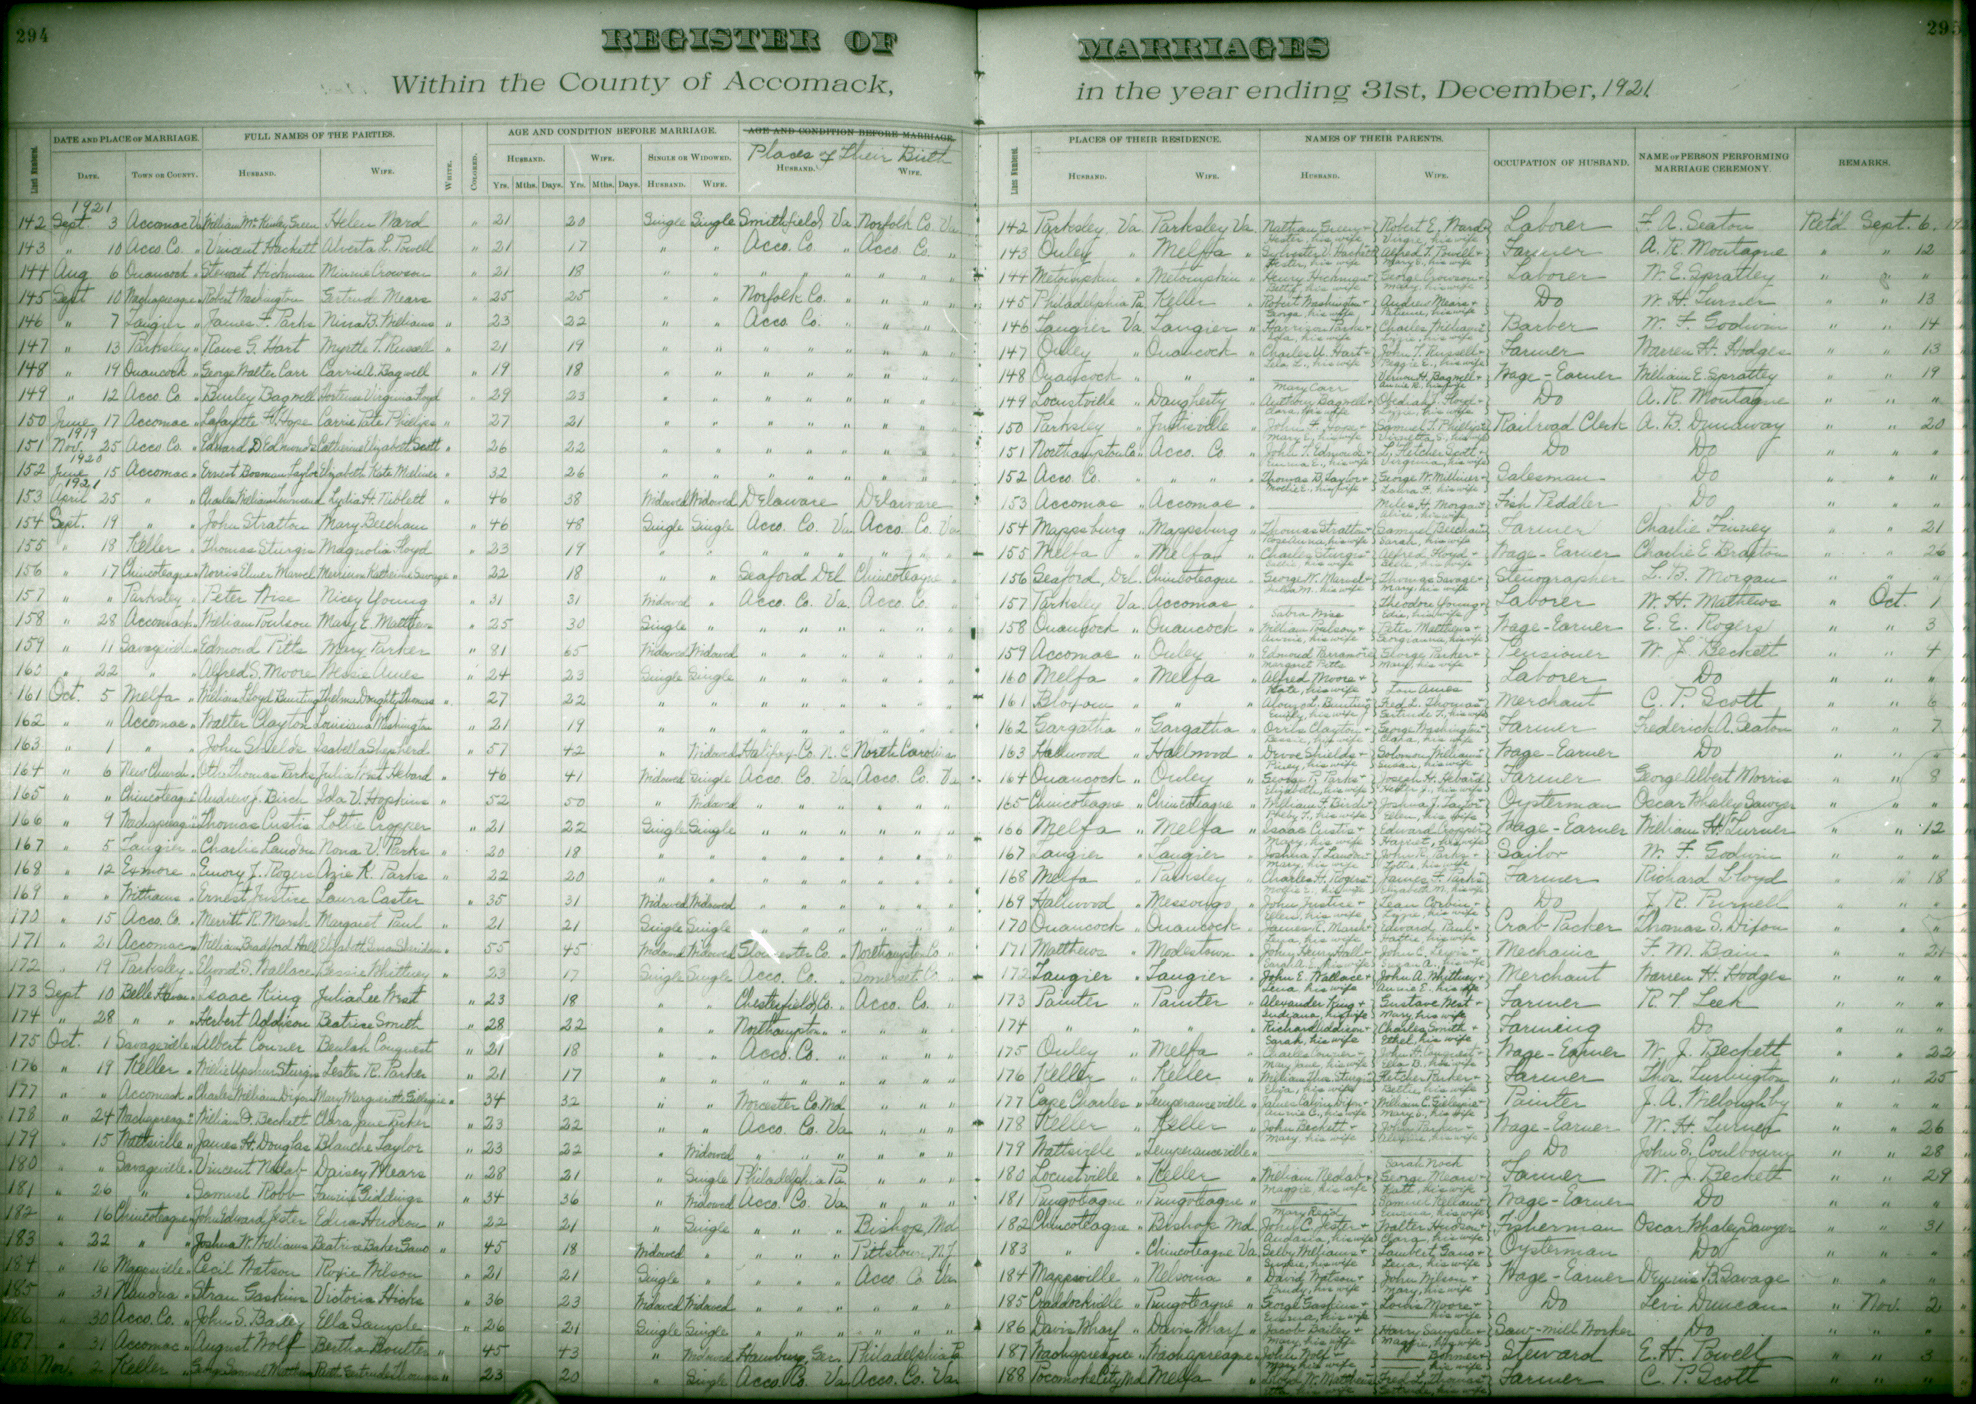 294
REGISTER OF
Within the County of Accomack,
MARRIAGES
in the year ending 31st, December, 1921.
295
Line Numbers.
DATE AND PLACE OF MARRIAGE.
FULL NAMES OF THE PARTIES.
WHITE.
COLORED.
AGE AND CONDITION BEFORE MARRIAGE.
AGE AND CONDITION BEFORE MARRIAGE.
Places of Their Birth
DATE. TOWN OR COUNTY. HUSBAND. WIFE. HUSBAND. WIFE. SINGLE OR WIDOWED. HUSBAND. WIFE.
Yrs. Mths. Days. Yrs. Mths. Days. HUSBAND. WIFE.
1921
142 Sept. 3 Accomac Va William McKinley Green Helen Ward " 21 20 Single Single Smithfield, Va Norfolk Co. Va
143 " 10 Acco. Co. " Vincent Hackett Alverta L. Powell " 21 17 " " Acco. Co. " Acco. Co. "
144 Aug 6 Onancock " Stewart Hickman Minnie Crowson " 21 18 " " " " " " " "
145 Sept 10 Wachapreague " Robert Washington Gertrud Mears " 25 25 " " Norfolk Co. " " " "
146 " 7 Tangier " James F. Parks Nina B. Williams " 23 22 " " Acco. Co. " " " "
147 " 13 Parksley " Rowe G. Hart Myrtle T. Russell " 21 19 " " " " " " " "
148 " 19 Onancock " George Walter Carr Carrie A. Bagwell " 19 18 " " " " " " " "
149 " 12 Acco. Co. " Burley Bagwell Hortense Virginia Floyd " 29 23 " " " " " " " "
150 June 17 Accomac " Lafayette F. Hope Carrie Pate Phillips " 27 21 " " " " " " " "
1919
151 Nov. 25 Acco Co. " Edward D. Edmonds Catherine Elizabeth Scott " 26 22 " " " " " " " "
1920
152 June 15 Accomac " Ernest Bosman Taylor Elizabeth Kate Melvin " 32 26 " " " " " " " "
1921
153 April 25 " " Charles William Townsend Lydia H. Niblett " 46 38 Widowed Widowed Delaware Delaware
154 Sept. 19 " " John Stratton Mary Beecham " 46 48 Single Single Acco. Co. Va Acco. Co. Va
155 " 18 Keller " Thomas Sturgis Magnolia Floyd " 23 19 " " " " " " " "
156 " 17 Chincoteague " Norris Elmer Marvel Katherine Savage " 22 18 " " Seaford Del Chincoteague "
157 " " Parksley " Peter Wise Nicey Young " 31 31 Widowed " Acco. Co. Va. Acco. Co. "
158 " 28 Accomack " William Poulson Mary E. Matthews " 25 30 Single " " " " " " "
159 " 11 Savageville " Edmond Pitts Mary Parker " 81 65 Widowed Widowed " " " " " "
160 " 22 " " Alfred S. Moore Nessie Ames " 24 23 Single Single " " " " " "
161 Oct. 5 Melfa " William Lloyd Bunting Thelma Doughty Thomas " 27 22 " " " " " " " "
162 " " Accomac " Walter Clayton Louisiana Washington " 21 19 " " " " " " " "
163 " 1 " " John Shields Isabella Shepherd " 57 42 " Widowed Halifax Co. N.C. North Carolina
164 " 6 New Church " Otho Thomas Parks Julia West Hebard " 46 41 Widowed Single Acco. Co. Va. Acco. Co. Va
165 " " Chincoteague " Andrew J. Birch Ida V. Hopkins " 52 50 " Widowed " " " " " "
166 " 9 Wachapreague " Thomas Custis Lottie Cropper " 21 22 Single Single " " " " " "
167 " 5 Tangier " Charlie Landon Nona V. Parks " 20 18 " " " " " " " "
168 " 12 Exmore " Emory J. Rogers Azie K. Parks " 22 20 " " " " " " " "
169 " " Withams " Ernest Justice Laura Caster " 35 31 Widowed Widowed " " " " " "
170 " 15 Acco. Co. " Merritt R. Marsh Margaret Paul " 21 21 Single Single " " " " " "
171 " 21 Accomac " William Bradford Hall Elizabeth Sheridan " 55 45 Widowed Widowed Gloucester Co. " Northampton Co "
172 " 19 Parksley " Elwood S. Wallace Bessie Whittney " 23 17 Single Single Acco. Co. " Somerset Co. "
173 Sept 10 Belle Haven " Isaac King Julia Lee West " 23 18 " " Chesterfield Co. " Acco. Co. "
174 " 28 " " Herbert Addison Beatrice Smith " 28 22 " " Northampton " " " "
175 Oct. 1 Savageville " Albert Conner Beulah Conquest " 21 18 " " Acco. Co. " " " "
176 " 19 Keller " Willie Upshur Sturgis Lester R. Parker " 21 17 " " " " " " " "
177 " " Accomack " Charles William Dixon Mary Marguerite Gillespie " 34 32 " " Worcester Co. Md " " "
178 " 24 Wachapreague " William D. Beckett Clara Jane Parker " 23 22 " " Acco. Co. Va " " "
179 " 15 Wattsville " James H. Douglas Blanche Taylor " 23 22 " Widowed " " " " " "
180 " " Savageville " Vincent Nedab Daisey Mears " 28 21 " Single Philadelphia Pa. " " "
181 " 26 " " Samuel Robb Fannie Giddings " 34 36 " Widowed Acco. Co. Va " " "
182 " 16 Chincoteague " John Edward Jester Edna Hudson " 22 21 " Single " " " Bishop, Md
183 " 22 " " Joshua W. Williams Beatrice Baker Gano " 45 18 Widowed " " " " Pittstown, N.J.
184 " 16 Mappsville " Cecil Watson Roxie Wilson " 21 21 Single " " " " Acco. Co. Va
185 " 31 Nandua " Stran Gaskins Victoria Hicks " 36 23 Widowed Widowed " " " " " "
186 " 30 Acco. Co. " John S. Bailey Ella Sample " 26 21 Single Single " " " " " "
187 " 31 Accomac " August Wolf Bertha Boulter " 45 43 " Widowed Hamburg, Ger. Philadelphia Pa
188 Nov. 2 Keller " George Samuel Matthews Ruth Gertrude Thomas " 23 20 " Single Acco. Co. Va Acco. Co. Va
Line Numbers.
PLACES OF THEIR RESIDENCE.
NAMES OF THEIR PARENTS.
OCCUPATION OF HUSBAND.
NAME OF PERSON PERFORMING MARRIAGE CEREMONY.
REMARKS.
HUSBAND. WIFE. HUSBAND. WIFE.
142 Parksley Va. Parksley Va. Nathan Green + Hester, his wife Robert E. Ward + Virgie, his wife Laborer F. A. Seaton Ret'd Sept. 6, 19
143 Onley " Melfa " Sylvester W. Hackett + his wife Alfred T. Powell + Mary E., his wife Farmer A. R. Montague " " 12
144 Metompkin " Metompkin " Henry Hickman + Bettie, his wife George Crowson + Mary, his wife Laborer W. E. Spratley " " "
145 Philadelphia Pa Keller " Robert Washington + Georga, his wife Andrew Mears + Patience, his wife Do W. H. Turner " " 13
146 Tangier Va. Tangier " Harrison Parks + his wife Charles Williams + Lizzie, his wife Barber W. F. Godwin " " 14
147 Onley " Onancock " Charles W. Hart + Lela L., his wife John T. Russell + Peggie E., his wife Farmer Warren H. Hodges " " 13
148 Onancock " " " Mary Carr Vernon H. Bagwell + Annie R., his wife Wage-Earner William E. Spratley " " 19
149 Locustville " Daugherty " Anthony Bagwell + Clara, his wife Obediah J. Floyd + Lizzie, his wife Do A. R. Montague " " "
150 Parksley " Justiceville " John F. Hope + Mary E., his wife Samuel T. Phillips + his wife Railroad Clerk A. B. Dunaway " " 20
151 Northampton Co " Acco. Co. " John T. Edmonds + Emma E., his wife L. Fletcher Scott + Virginia, his wife Do Do " " "
152 Acco. Co. " " " Thomas D. Taylor + Mollie E., his wife George W. Melvin + Laura F., his wife Salesman Do " " "
153 Accomac " Accomac " Miles H. Morgan + his wife Fish Peddler Do " " "
154 Mappsburg " Mappsburg " Thomas Stratton + Rose Anna, his wife Samuel Beecham + Sarah, his wife Farmer Charlie Finney " " 21
155 Melfa " Melfa " Charles Sturgis + Sallie, his wife Alfred Floyd + his wife Wage-Earner Charlie E. Braxton " " 26
156 Seaford, Del. Chincoteague " George W. Marvel + Julia M., his wife Thomas Savage + Mary, his wife Stenographer L. B. Morgan " " "
157 Parksley Va. Accomac " Sabra Wise Theodore Young + Eda, his wife Laborer W. H. Mathews " Oct. 1
158 Onancock " Onancock " William Poulson + Annie, his wife Peter Matthews + Georgianna, his wife Wage-Earner E. E. Rogers " " 3
159 Accomac " Onley " Edmond Parramore Margaret Pitts George Parker + Mary, his wife Pensioner W. J. Beckett " " 4
160 Melfa " Melfa " Alfred Moore + Kate, his wife Lou Ames Laborer Do " " "
161 Bloxom " " " Alonzo J. Bunting + Emily, his wife Fred L. Thomas + Gertrude T., his wife Merchant C. P. Scott " " 6
162 Gargatha " Gargatha " Orris Clayton + his wife George Washington + Clara, his wife Farmer Frederick A. Seaton " " 7
163 Hallwood " Hallwood " Drove Shields + Pinkey, his wife Solomon Williams + Susan, his wife Wage-Earner Do " " "
164 Onancock " Onley " George P. Parks + Elizabeth, his wife Joseph H. Hebard + Hester J., his wife Farmer George Albert Morris " " 8
165 Chincoteague " Chincoteague " William F. Birch + Pheby T., his wife Joshua J. Taylor + Ellen, his wife Oysterman Oscar Whaley Sawyer " " "
166 Melfa " Melfa " Isaac Custis + Mary, his wife Edward Cropper + Harriet, his wife Wage-Earner William H. Turner " " 12
167 Tangier " Tangier " Joshua T. Landon + Mary, his wife John R. Parks + Lottie, his wife Sailor W. F. Godwin " " "
168 Melfa " Parksley " Charles H. Rogers + Mollie E., his wife James F. Parks + Elizabeth M., his wife Farmer Richard Lloyd " " 18
169 Hallwood " Messongo " John Justice + Ellen, his wife Lean Corbin + Lizzie, his wife Do J. R. Purnell " " "
170 Onancock " Onancock " James R. Marsh + Leva, his wife Edward Paul + Hattie, his wife Crab-Packer Thomas S. Dixon " " "
171 Matthews " Modestown " John Henry Hall + Sarah A., his wife John C. Lewis + Eugene A., his wife Mechanic F. M. Bain " " 21
172 Tangier " Tangier " John E. Wallace + Lena, his wife John A. Whittney + Annie E., his wife Merchant Warren H. Hodges " " "
173 Painter " Painter " Alexander King + Indiana, his wife Gustave West + Mary, his wife Farmer R. T. Leek " " "
174 " " " " Richard Addison + Sarah, his wife Charles Smith + Ethel, his wife Farming Do " " "
175 Onley " Melfa " Charles Conner + Mary Jane, his wife John H. Conquest + Ella B., his wife Wage-Earner W. J. Beckett " " 22
176 Keller " Keller " William Thos. Sturgis + his wife Fletcher Parker + Bettie, his wife Farmer Thos. Turlington " " 25
177 Cape Charles " Temperanceville " James Calvin Dixon + Annie C., his wife William C. Gillespie + Mary E., his wife Painter J. A. Willoughby " " "
178 Keller " Keller " John Beckett + Mary, his wife John Parker + his wife Wage-Earner W. H. Turner " " 26
179 Wattsville " Temperanceville " Sarah Nock Do John S. Coulbourn " " 28
180 Locustville " Keller " William Nedab + Maggie, his wife George Mears + Katt, his wife Farmer W. J. Beckett " " 29
181 Pungoteague " Pungoteague " Mary Reid Samuel Kellam + Emma, his wife Wage-Earner Do " " "
182 Chincoteague " Bishop Md. John C. Jester + Andasia, his wife Walter Hudson + Clara, his wife Fisherman Oscar Whaley Sawyer " " 31
183 " " Chincoteague Va. Selby Williams + Sophie, his wife Lambert Gano + Lena, his wife Oysterman Do " " "
184 Mappsville " Nelsonia " David Watson + Trudy, his wife John Wilson + Mary, his wife Wage-Earner Dennis B. Savage " " "
185 Craddockville " Pungoteague " George Gaskins + Emma, his wife Louis Moore + his wife Do Levi Duncan " Nov. 2
186 Davis Wharf " Davis Wharf " Jacob Bailey + Mary, his wife Harry Sample + Maggie, his wife Saw-mill Worker Do " " "
187 Wachapreague " Wachapreague " John Wolf + Mary, his wife Bonner + his wife Steward E. H. Powell " " 3
188 Pocomoke City, Md. Melfa " Lloyd W. Matthews + Etta, his wife Fred L. Thomas + Gertrude, his wife Farmer C. P. Scott " " "